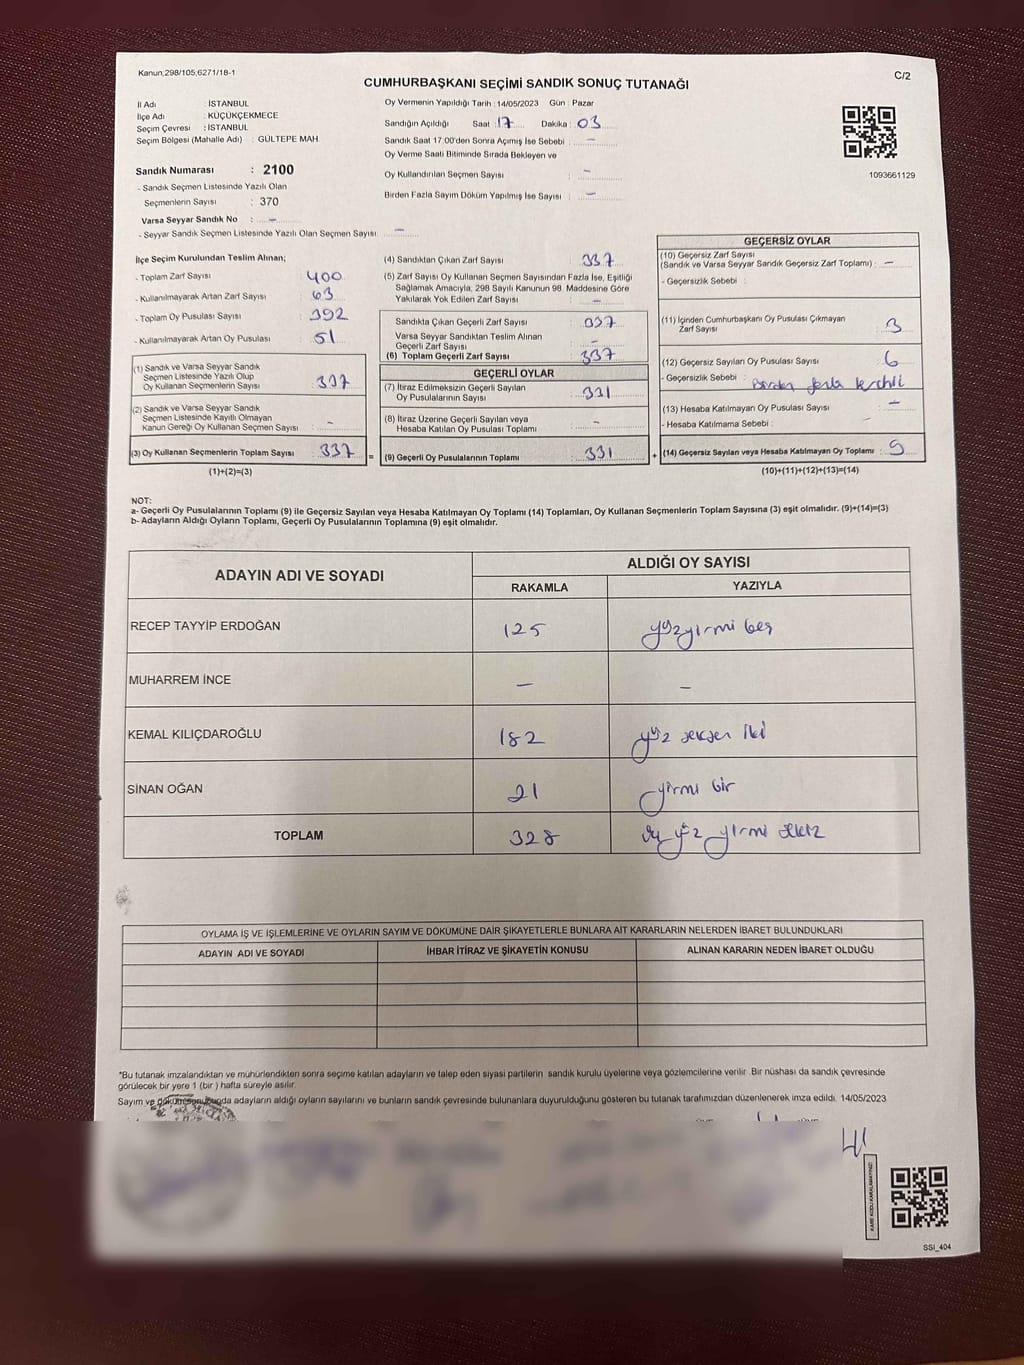 Kanun;298/105,6271/18-1
C/2
CUMHURBAŞKANI SEÇİMİ SANDIK SONUÇ TUTANAĞI
İl Adı : İSTANBUL
İlçe Adı : KÜÇÜKÇEKMECE
Seçim Çevresi : İSTANBUL
Seçim Bölgesi (Mahalle Adı) : GÜLTEPE MAH
Sandık Numarası : 2100
- Sandık Seçmen Listesinde Yazılı Olan
Seçmenlerin Sayısı : 370
Varsa Seyyar Sandık No : -
- Seyyar Sandık Seçmen Listesinde Yazılı Olan Seçmen Sayısı: -
Oy Vermenin Yapıldığı Tarih : 14/05/2023 Gün : Pazar
Sandığın Açıldığı Saat : 17 Dakika : 03
Sandık Saat 17:00'den Sonra Açımış İse Sebebi : -
Oy Verme Saati Bitiminde Sırada Bekleyen ve
Oy Kullandırılan Seçmen Sayısı : -
Birden Fazla Sayım Döküm Yapılmış İse Sayısı : -
1093661129
İlçe Seçim Kurulundan Teslim Alınan;
- Toplam Zarf Sayısı : 400
- Kullanılmayarak Artan Zarf Sayısı : 63
- Toplam Oy Pusulası Sayısı : 392
- Kullanılmayarak Artan Oy Pusulası : 51
(1) Sandık ve Varsa Seyyar Sandık
Seçmen Listesinde Yazılı Olup
Oy Kullanan Seçmenlerin Sayısı : 337
(2) Sandık ve Varsa Seyyar Sandık
Seçmen Listesinde Kayıtlı Olmayan
Kanun Gereği Oy Kullanan Seçmen Sayısı : -
(3) Oy Kullanan Seçmenlerin Toplam Sayısı : 337 =
(1)+(2)=(3)
(4) Sandıktan Çıkan Zarf Sayısı : 337
(5) Zarf Sayısı Oy Kullanan Seçmen Sayısından Fazla İse, Eşitliği
Sağlamak Amacıyla, 298 Sayılı Kanunun 98. Maddesine Göre
Yakılarak Yok Edilen Zarf Sayısı : -
Sandıkta Çıkan Geçerli Zarf Sayısı : 337
Varsa Seyyar Sandıktan Teslim Alınan
Geçerli Zarf Sayısı : -
(6) Toplam Geçerli Zarf Sayısı : 337
GEÇERLİ OYLAR
(7) İtiraz Edilmeksizin Geçerli Sayılan
Oy Pusulalarının Sayısı : 331
(8) İtiraz Üzerine Geçerli Sayılan veya
Hesaba Katılan Oy Pusulası Toplamı : -
(9) Geçerli Oy Pusulalarının Toplamı : 331 +
GEÇERSİZ OYLAR
(10) Geçersiz Zarf Sayısı
(Sandık ve Varsa Seyyar Sandık Geçersiz Zarf Toplamı) : -
- Geçersizlik Sebebi :
(11) İçinden Cumhurbaşkanı Oy Pusulası Çıkmayan
Zarf Sayısı : 3
(12) Geçersiz Sayılan Oy Pusulası Sayısı : 6
- Geçersizlik Sebebi : Birden fazla tercihli
(13) Hesaba Katılmayan Oy Pusulası Sayısı : -
- Hesaba Katılmama Sebebi :
(14) Geçersiz Sayılan veya Hesaba Katılmayan Oy Toplamı : 9
(10)+(11)+(12)+(13)=(14)
NOT:
a- Geçerli Oy Pusulalarının Toplamı (9) ile Geçersiz Sayılan veya Hesaba Katılmayan Oy Toplamı (14) Toplamları, Oy Kullanan Seçmenlerin Toplam Sayısına (3) eşit olmalıdır. (9)+(14)=(3)
b- Adayların Aldığı Oyların Toplamı, Geçerli Oy Pusulalarının Toplamına (9) eşit olmalıdır.
ADAYIN ADI VE SOYADI
ALDIĞI OY SAYISI
RAKAMLA YAZIYLA
RECEP TAYYİP ERDOĞAN 125 yüzyirmi beş
MUHARREM İNCE - -
KEMAL KILIÇDAROĞLU 182 yüz seksen iki
SİNAN OĞAN 21 yirmi bir
TOPLAM 328 üç yüz yirmi sekiz
OYLAMA İŞ VE İŞLEMLERİNE VE OYLARIN SAYIM VE DÖKÜMÜNE DAİR ŞİKAYETLERLE BUNLARA AİT KARARLARIN NELERDEN İBARET BULUNDUKLARI
ADAYIN ADI VE SOYADI İHBAR İTİRAZ VE ŞİKAYETİN KONUSU ALINAN KARARIN NEDEN İBARET OLDUĞU
*Bu tutanak imzalandıktan ve mühürlendikten sonra seçime katılan adayların ve talep eden siyasi partilerin sandık kurulu üyelerine veya gözlemcilerine verilir. Bir nüshası da sandık çevresinde
görülecek bir yere 1 (bir ) hafta süreyle asılır.
Sayım ve dökümü sonucunda adayların aldığı oyların sayılarını ve bunların sandık çevresinde bulunanlara duyurulduğunu gösteren bu tutanak tarafımızdan düzenlenerek imza edildi. 14/05/2023
KARE KODU KARALAMAYINIZ!
SSI_404